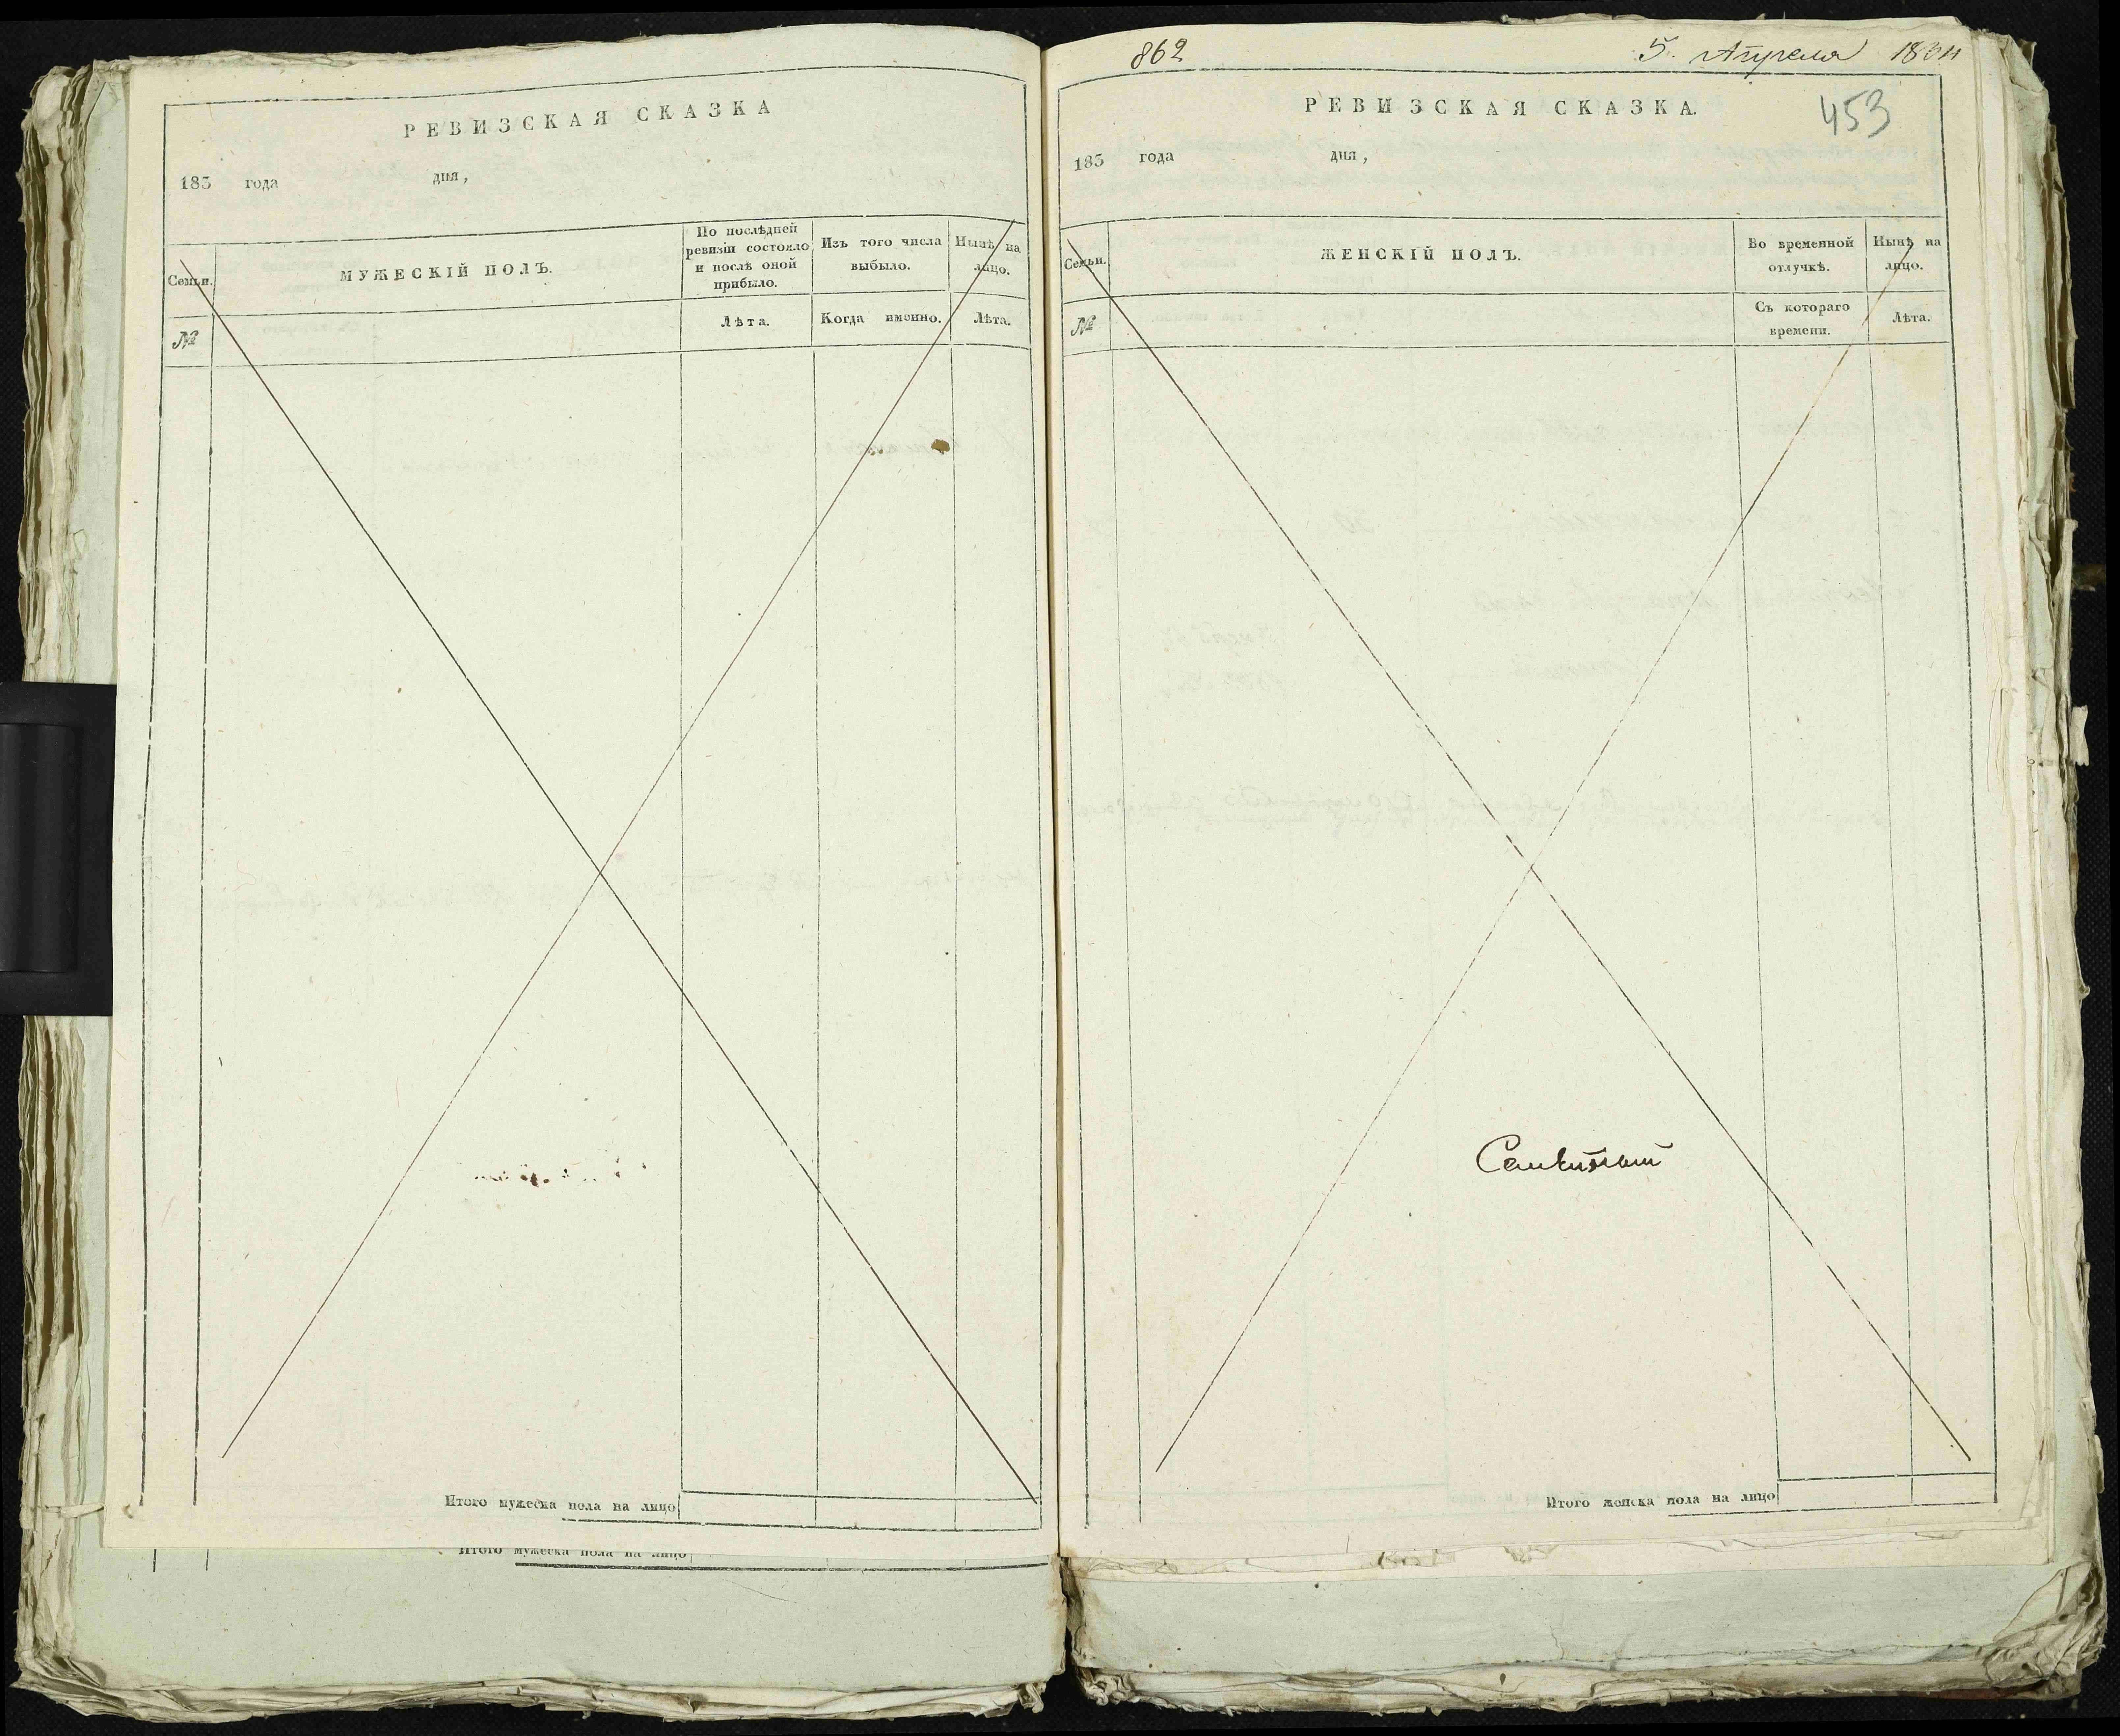 РЕВИЗСКАЯ СКАЗКА
183 года дня,
Семьи.
МУЖЕСКІЙ ПОЛЪ.
По послѣдней
ревизіи состояло
и послѣ оной
прибыло.
Изъ того числа
выбыло.
Нынѣ на
лицо.
№
Лѣта.
Когда именно.
Лѣта.
Итого мужеска пола на лицо
Итого мужеска пола на лицо
862
5. Апреля
РЕВИЗСКАЯ СКАЗКА.
453
183 года дня,
Семьи.
ЖЕНСКІЙ ПОЛЪ.
Во временной
отлучкѣ.
Нынѣ на
лицо.
№
Съ котораго
времени.
Лѣта.
Итого женска пола на лицо